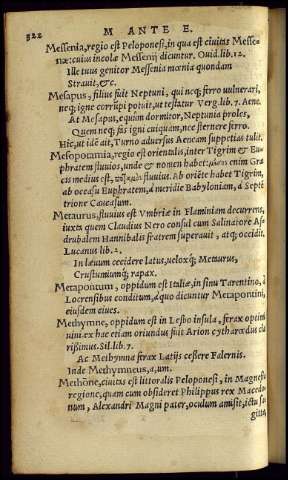 322 M ANTE E.
Messenia, regio est Peloponesi, in qua est civitas Messe-
næ: cuius incolæ Messenij dicuntur. Ovid. lib. 12.
Ille tuus genitor Messenia mœnia quondam
Stravit, &c.
Mesapus, filius fuit Neptuni, qui neq; ferro vulnerari,
neq; igne corrũpi potuit, ut testatur Verg. lib. 7. Aene.
At Mesapus, equûm domitor, Neptunia proles,
Quem neq; fas igni cuiquam, nec sternere ferro.
Hic, ut idē ait, Turno adversus Aeneam suppetias tulit.
Mesopotamia, regio est orientalis, inter Tigrim & Eu-
phratem fluvios, unde & nomen habet: enim Græ
cis medius est, fluvius. Ab oriēte habet Tigrim,
ab occasu Euphratem, à meridie Babyloniam, à Septē
trione Caucasum.
Metaurus, fluvius est Vmbriæ in Flaminiam decurrens,
iuxta quem Claudius Nero consul cum Salinatore As-
drubalem Hannibalis fratrem superavit, atq; occidit.
Lucanus lib. 2.
In lævum cecidere latus, veloxq; Metaurus,
Crustumiumq; rapax.
Metapontum, oppidum est Italiæ, in sinu Tarentino, à
Locrensibus conditum, à quo dicuntur Metapontini,
eiusdem cives.
Methymne, oppidum est in Lesbo insula, ferax optimi
vini. ex hac etiam oriundus fuit Arion cytharœdus cla
rissimus. Sil. lib. 7.
Ac Methymna ferax Latijs cessere Falernis.
Inde Methymneus, a, um.
Methône, civitas est littoralis Peloponesi, in Magnesiæ
regione, quam cum obsideret Philippus rex Macedo-
num, Alexandri Magni pater, oculum amisit, ictu sa-
gittæ